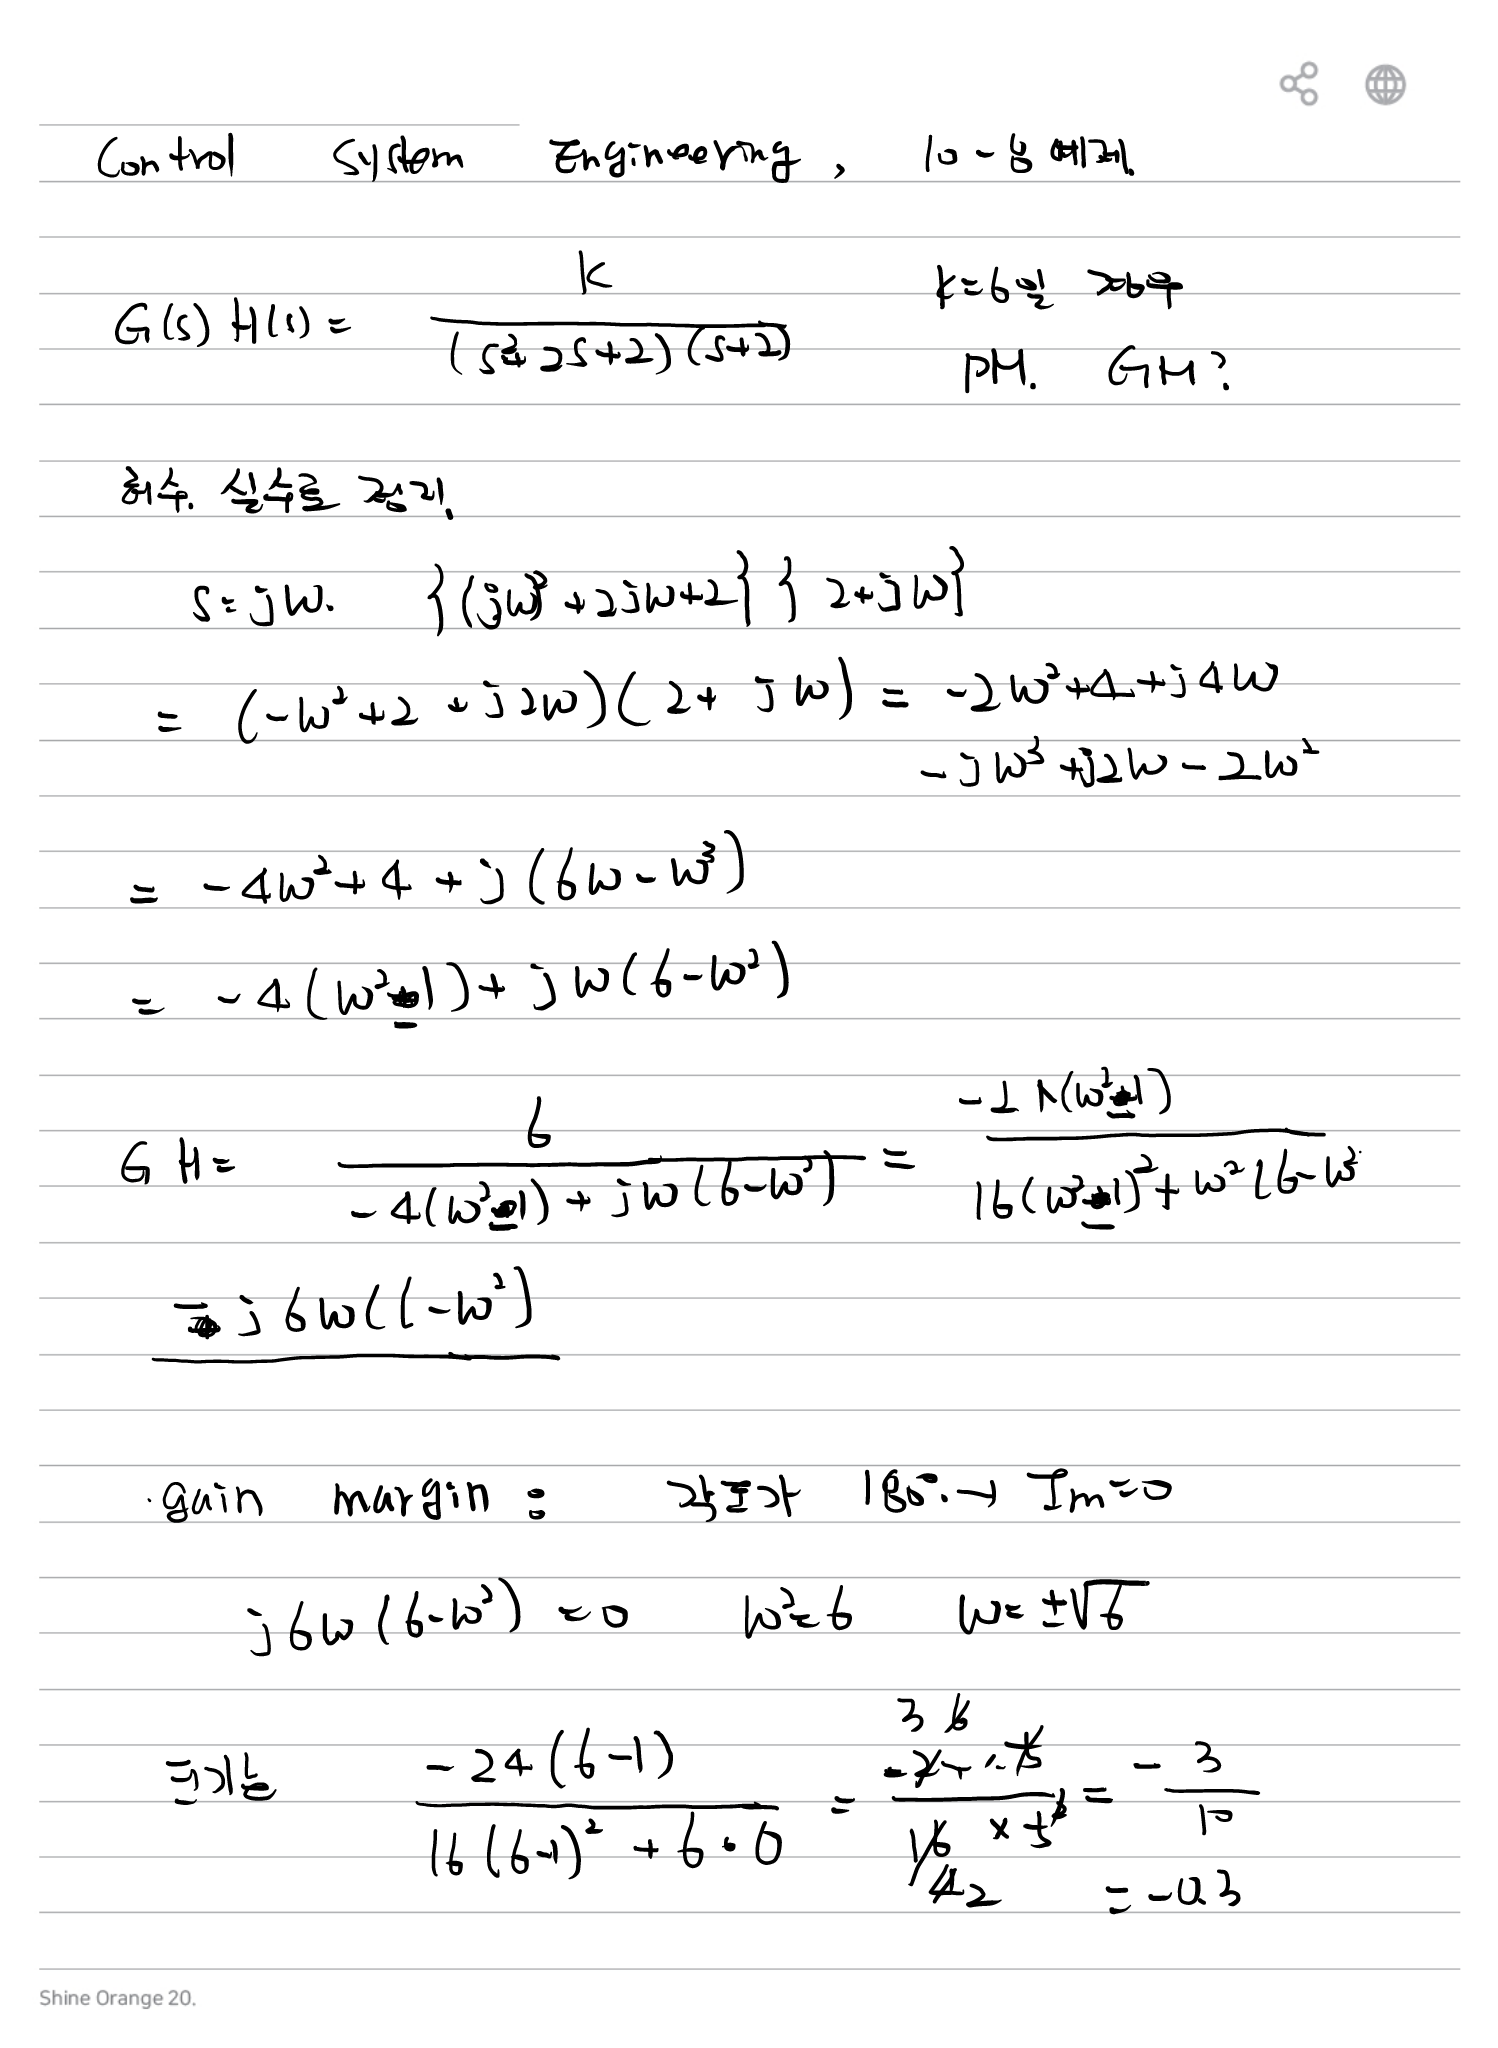 Control System Engineering, 10-8 예제.
G(s) H(s) = K / (s²+2s+2)(s+2) K=6일 경우
PM. GM?
허수. 실수로 정리.
s=jw. {(jw)²+2jw+2}{2+jw}
= (-w²+2+j2w)(2+jw) = -2w²+4+j4w
-jw³+j2w-2w²
= -4w²+4+j(6w-w³)
= -4(w²-1)+jw(6-w²)
GH= 6 / -4(w²-1)+jw(6-w²) = (w²-1) / 16(w²-1)²+w²(6-w²
-j6w( -w²)
·gain margin : 각도가 180°.→ Im=0
j6w(6-w²)=0 w²=6 w=±√6
크기는 -24(6-1) / 16(6-1)²+6·0 = = -3/10
= -0.3
Shine Orange 20.